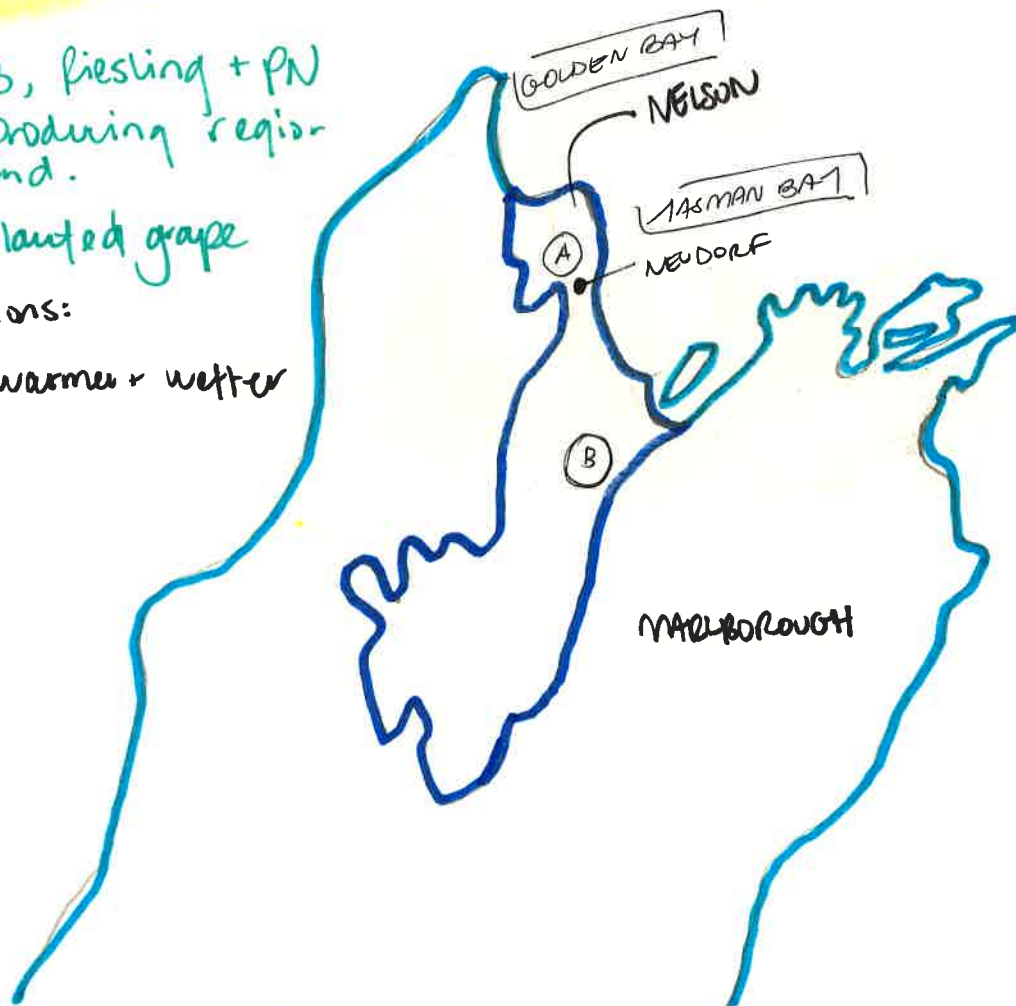 B, Riesling + PN
producing region
nd.
lanted grape
ons:
warmer + wetter
GOLDEN BAY
NELSON
TASMAN BAY
NEUDORF
A
B
MARLBOROUGH